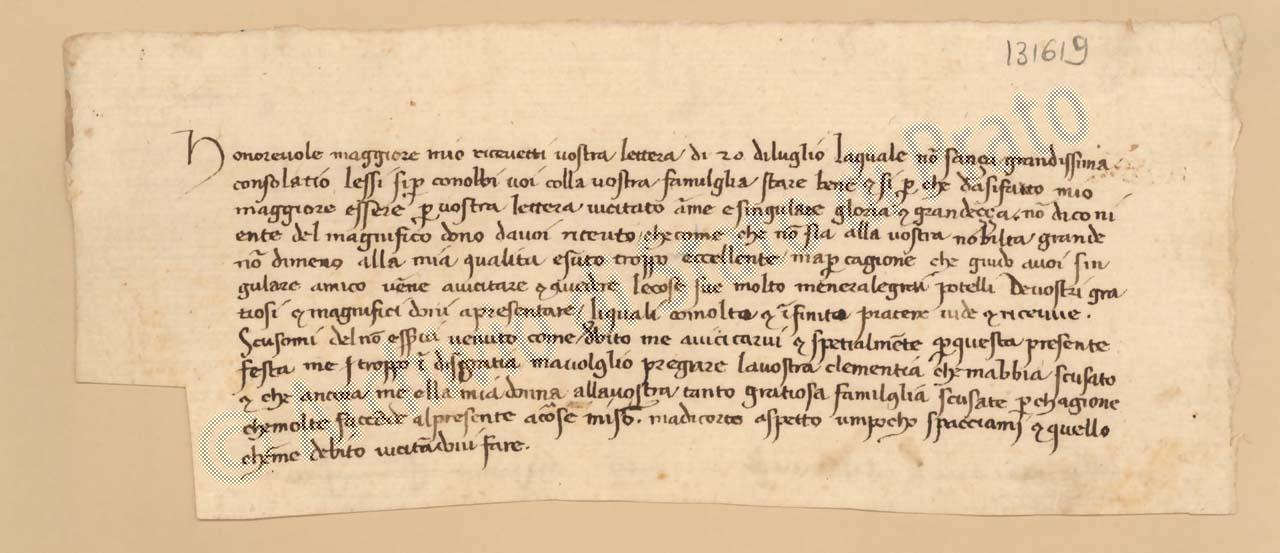 131619
Honorevole maggiore mio ricevetti vostra lettera di 20 diluglio laquale nō sança grandissima
consolatio lessi sip̄ conobbi voi colla vostra famulglia stare bene & si p̄ che dasifatto mio
maggiore essere p̄ vostra lettera vicitato āme e singulare gloria & grandeçça. nō diconi
ente del magnifico dono davoi ricevto checome che nō sia alla vostra nobilta grande
nō dimeno alla mia qualita esuto troppo eccellente map̄ cagione che giudo avoi sin
gulare amico vēne avicitare & lecose sue molto meneralegrai potelli devostri gra
tiosi & magnifici doni apresentare liquali comolto & īfinito piacere vide & riceuue.
Scusomi delnō essvi venuto come debito me avicitarui & spetialmēte p̄ questa presente
festa me troppo ī disgratia mavolglio pregare lavostra clementia chemabbia scusato
& che ancora me ella mia donna allavostra tanto gratiosa famulglia scusate p̄ chagione
chemolte faccēde alpresente acōse misō. madicorto aspetto umpocho spacciami & quello
chēme debito vicitādovi fare.
© Archivio di Stato di Prato